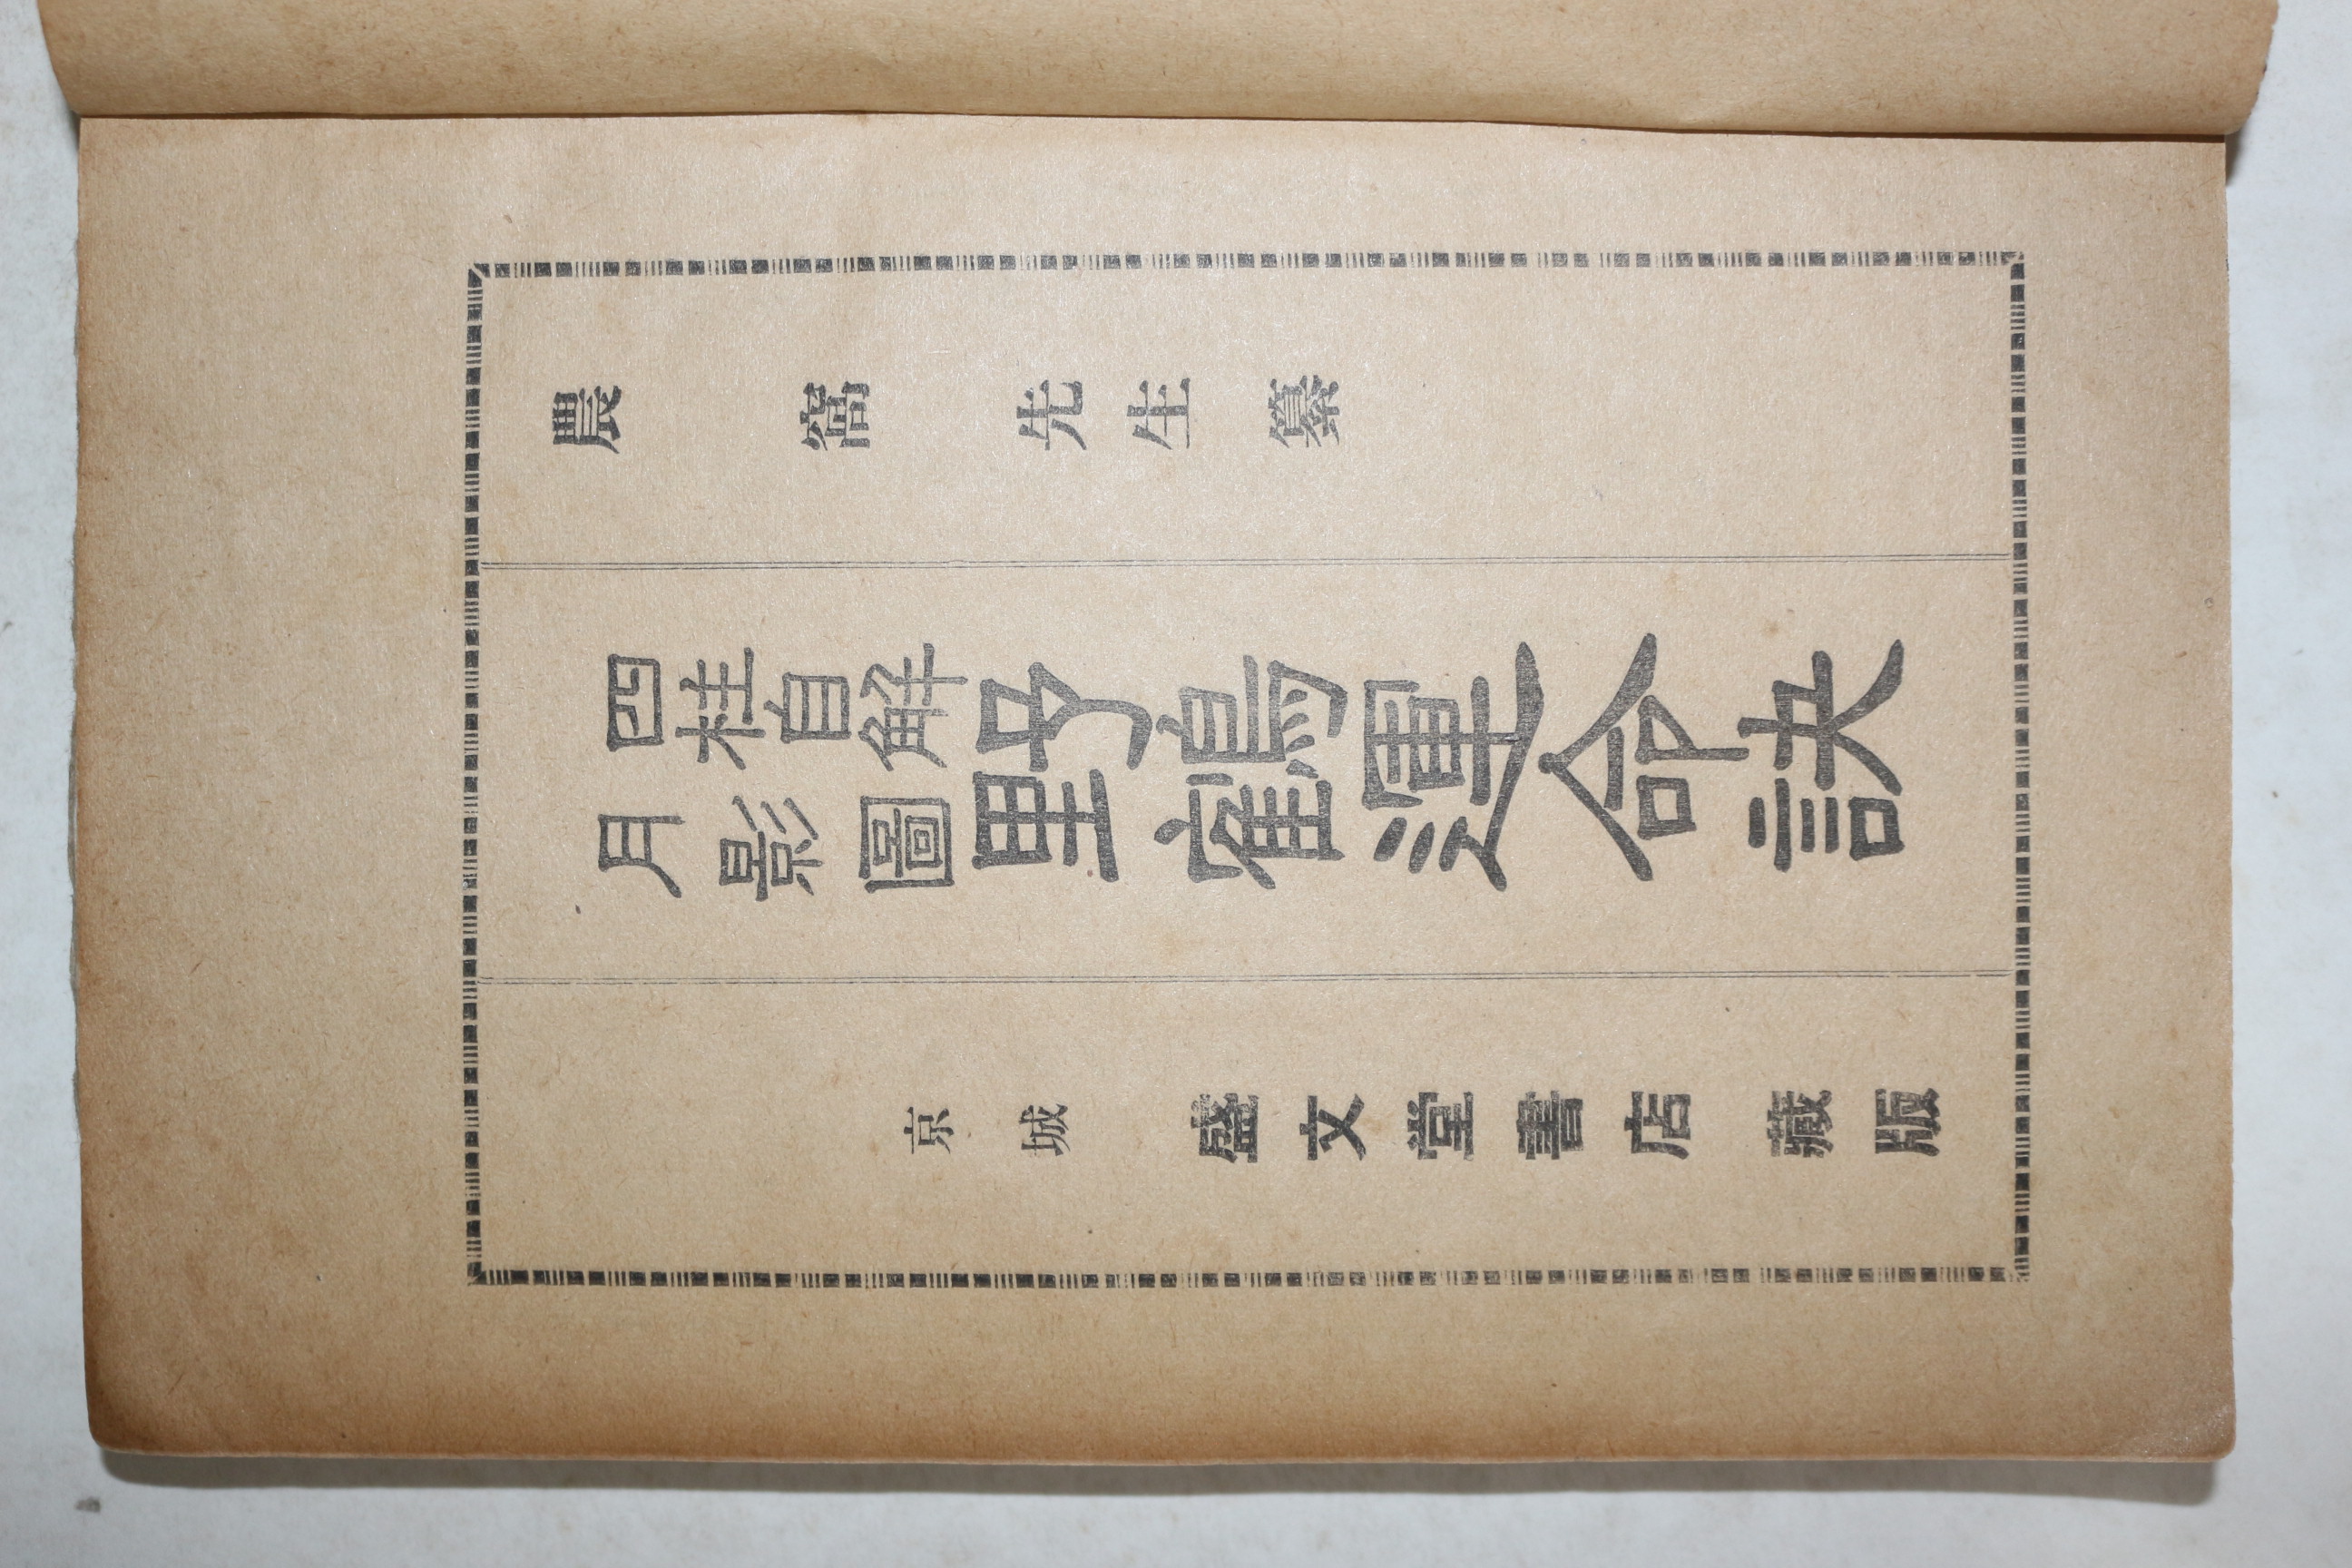 農窩先生纂
四柱自解
月影圖
野鶴運命訣
京城 盛文堂書店 藏版